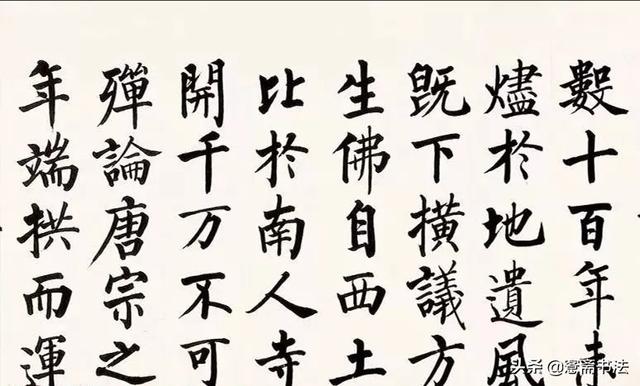 數十百年未
燼於地遺風
既下橫議方
生佛自西土
比於南人寺
開千万不可
殫論唐宗之
年端拱而運
头条@蹇斋书法